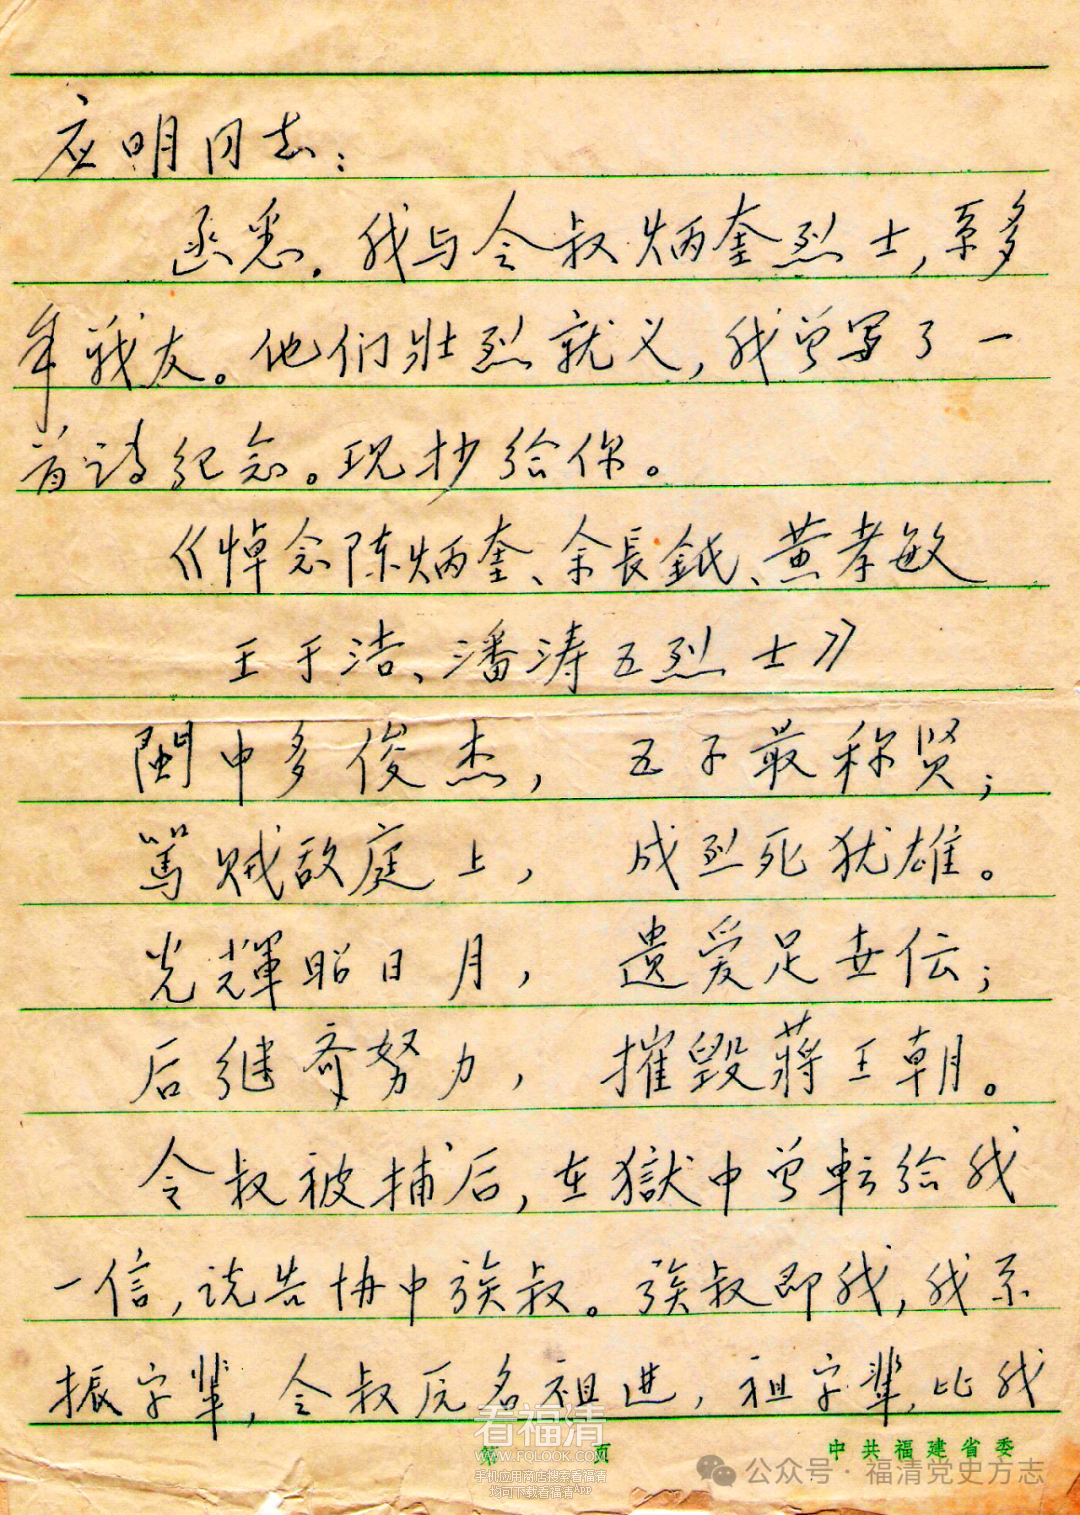 应明同志：
函悉。我与令叔炳奎烈士，系多
年战友。他们壮烈就义，我曾写了一
首诗纪念。现抄给你。
《悼念陈炳奎、余長鉞、黄孝敏
王于洁、潘涛五烈士》
閩中多俊杰，五子最称贤；
骂贼敌庭上，成烈死犹雄。
光輝昭日月，遗爱足世伝；
后继齐努力，摧毁蒋王朝。
令叔被捕后，在獄中曾転给我
一信，说告协中族叔。族叔即我，我系
振字輩，令叔原名祖进，祖字輩，比我
第 页
中共福建省委
看福清
WWW.FQLOOK.COM
手机应用商店搜索看福清
均可下载看福清App
公众号·福清党史方志